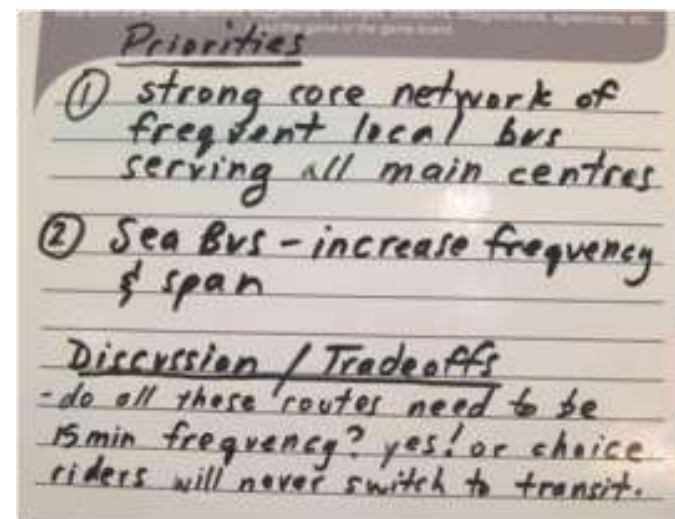 Priorities
① strong core network of
frequent local bus
serving all main centres
② Sea Bus - increase frequency
& span
Discussion / Tradeoffs
- do all these routes need to be
15 min frequency? yes! or choice
riders will never switch to transit.